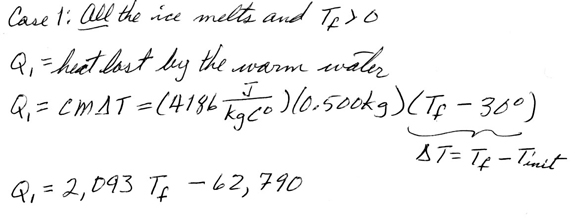 Case 1: All the ice melts and T_f > 0
Q₁ = heat lost by the warm water
Q₁ = cmΔT = (4186 J/kgC°)(0.500kg)(T_f - 30°)
ΔT = T_f - T_init
Q₁ = 2,093 T_f - 62,790